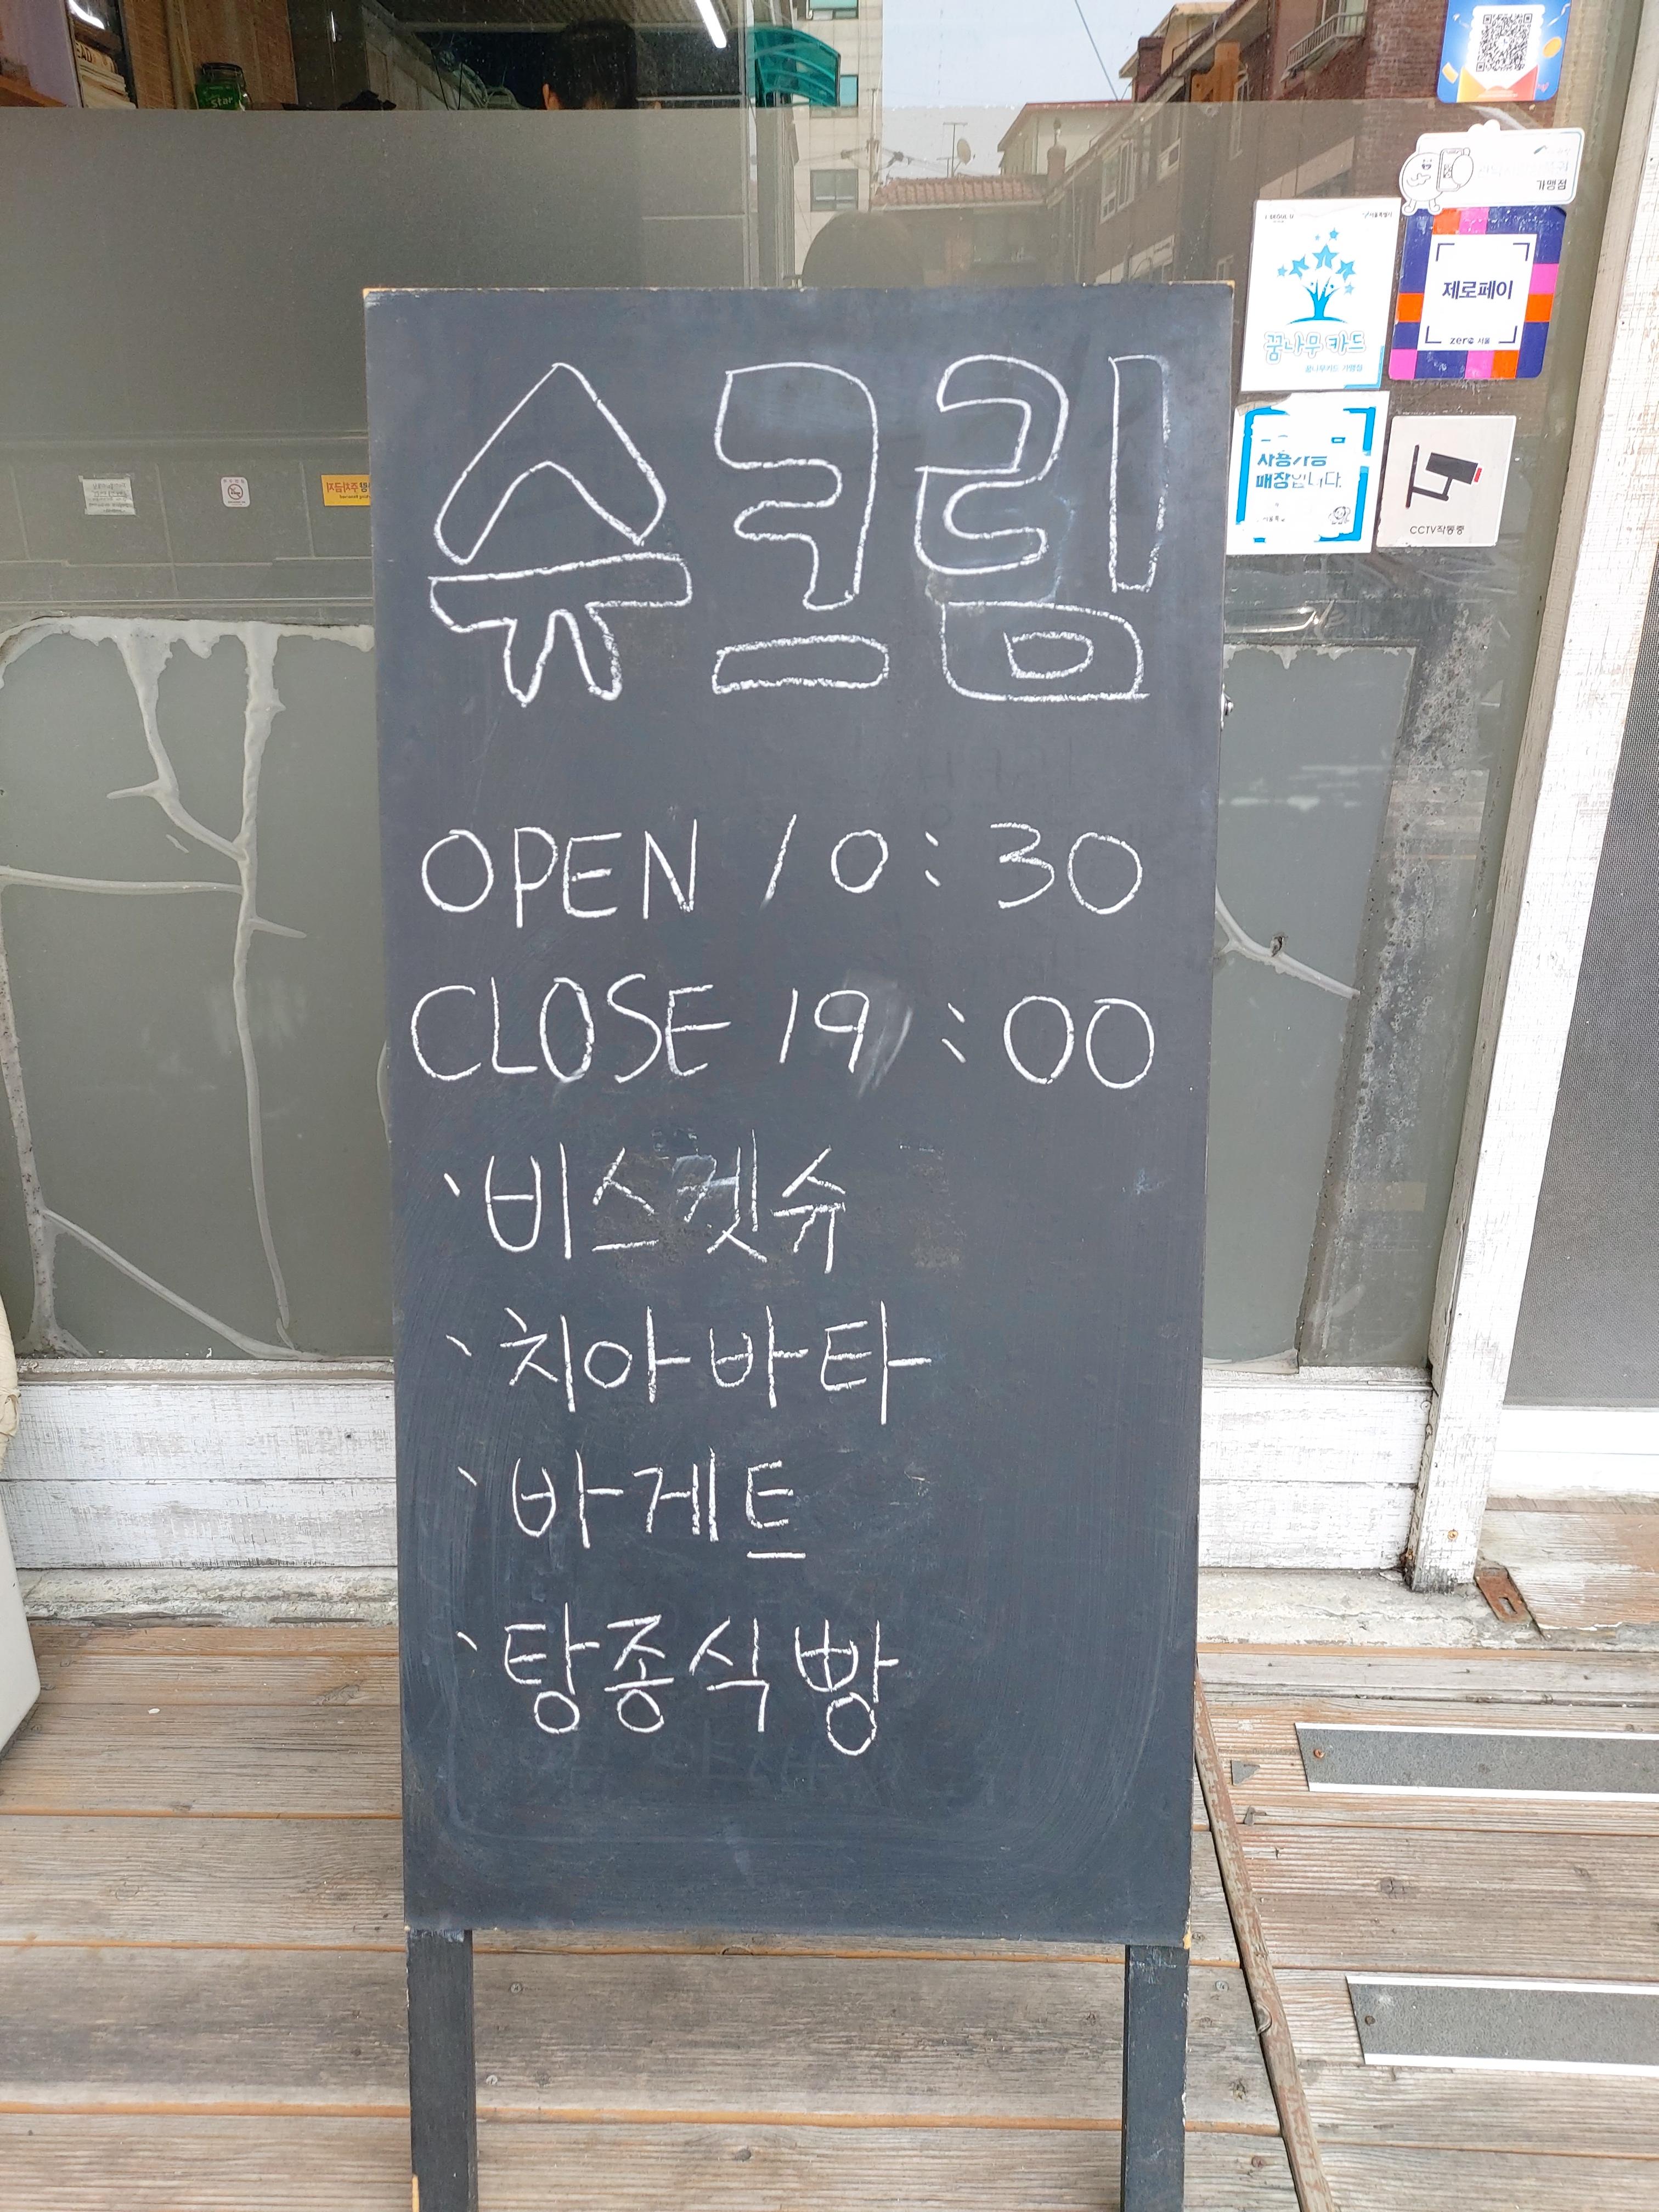 슈크림
OPEN 10:30
CLOSE 19:00
비스켓슈
치아바타
바게트
탕종식빵
가맹점
꿈나무카드
꿈나무카드 가맹점
제로페이
zero 서울
사용가능
매장입니다.
CCTV작동중
star